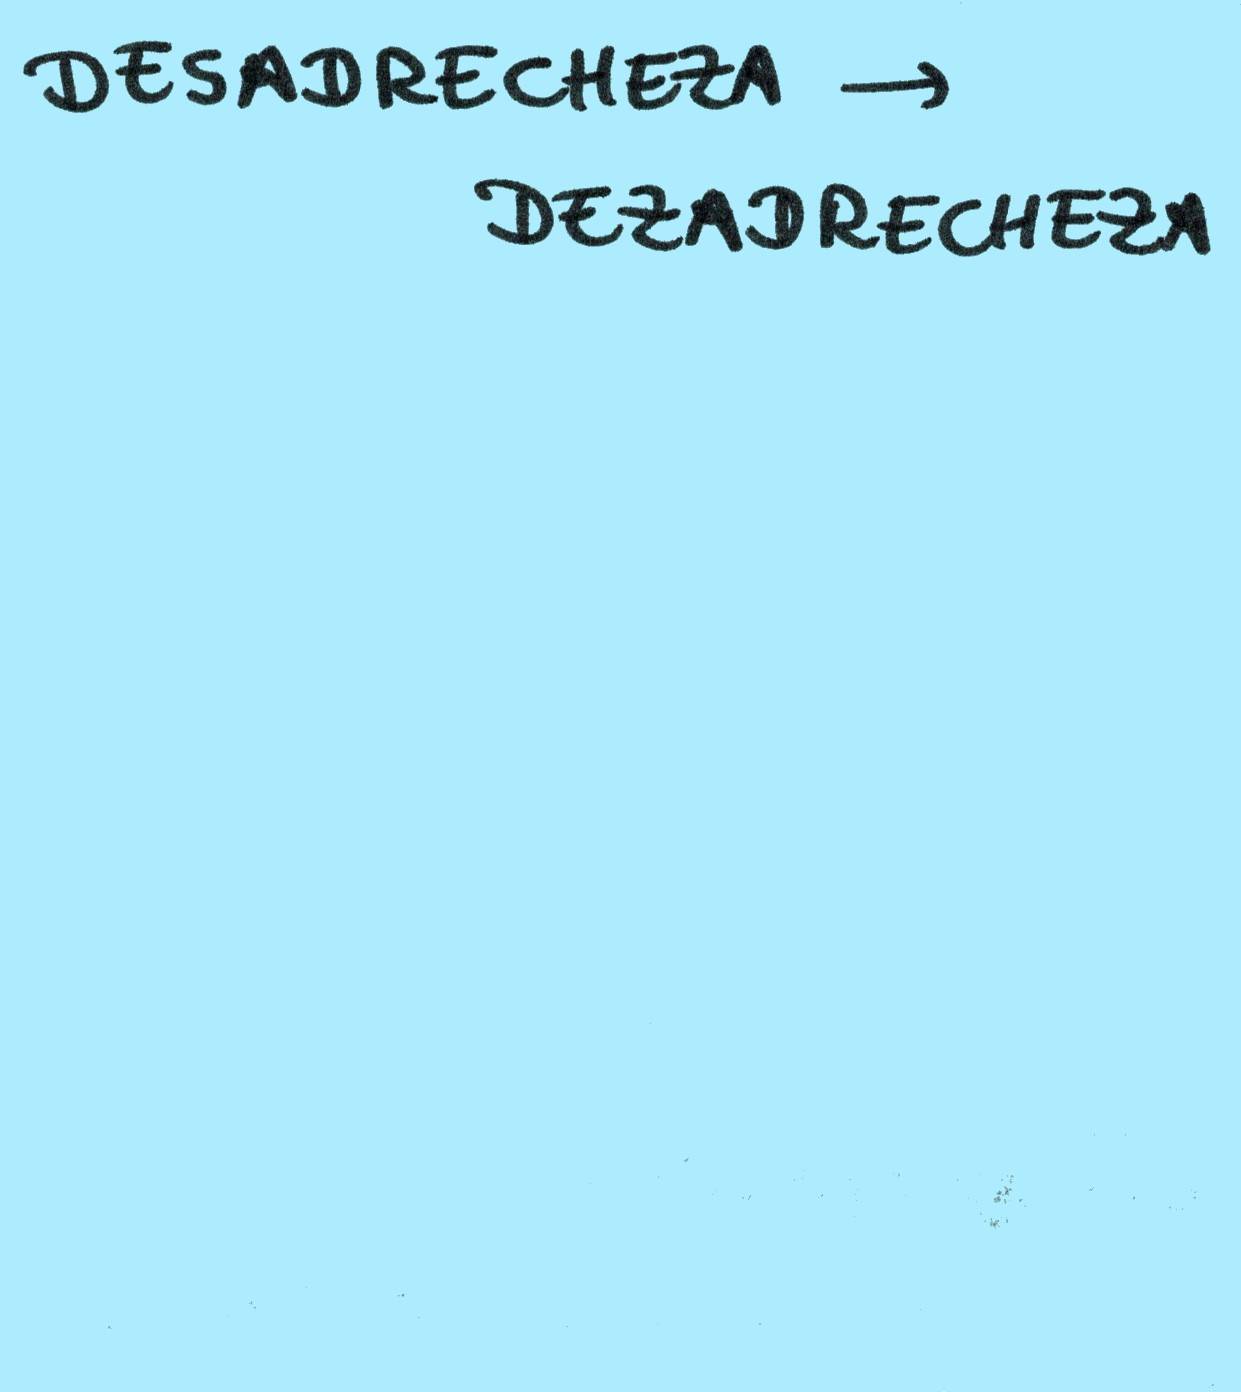 DESADRECHEZA →
DEZADRECHEZA